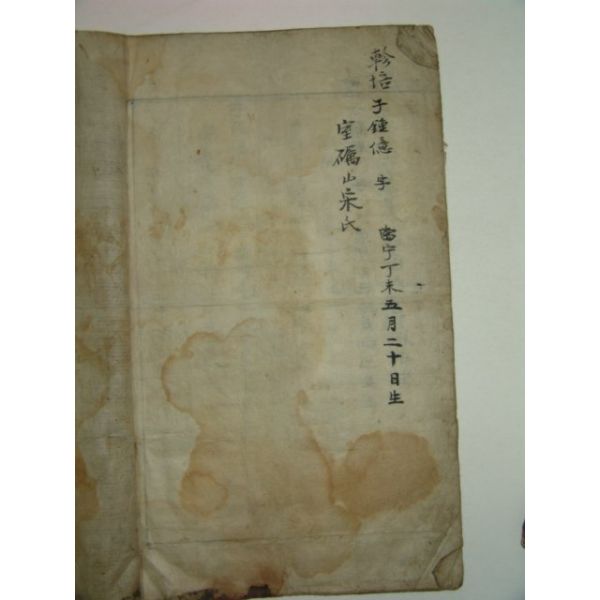 軫培子鍾億 字 當宁丁未五月二十日生
室礪山宋氏